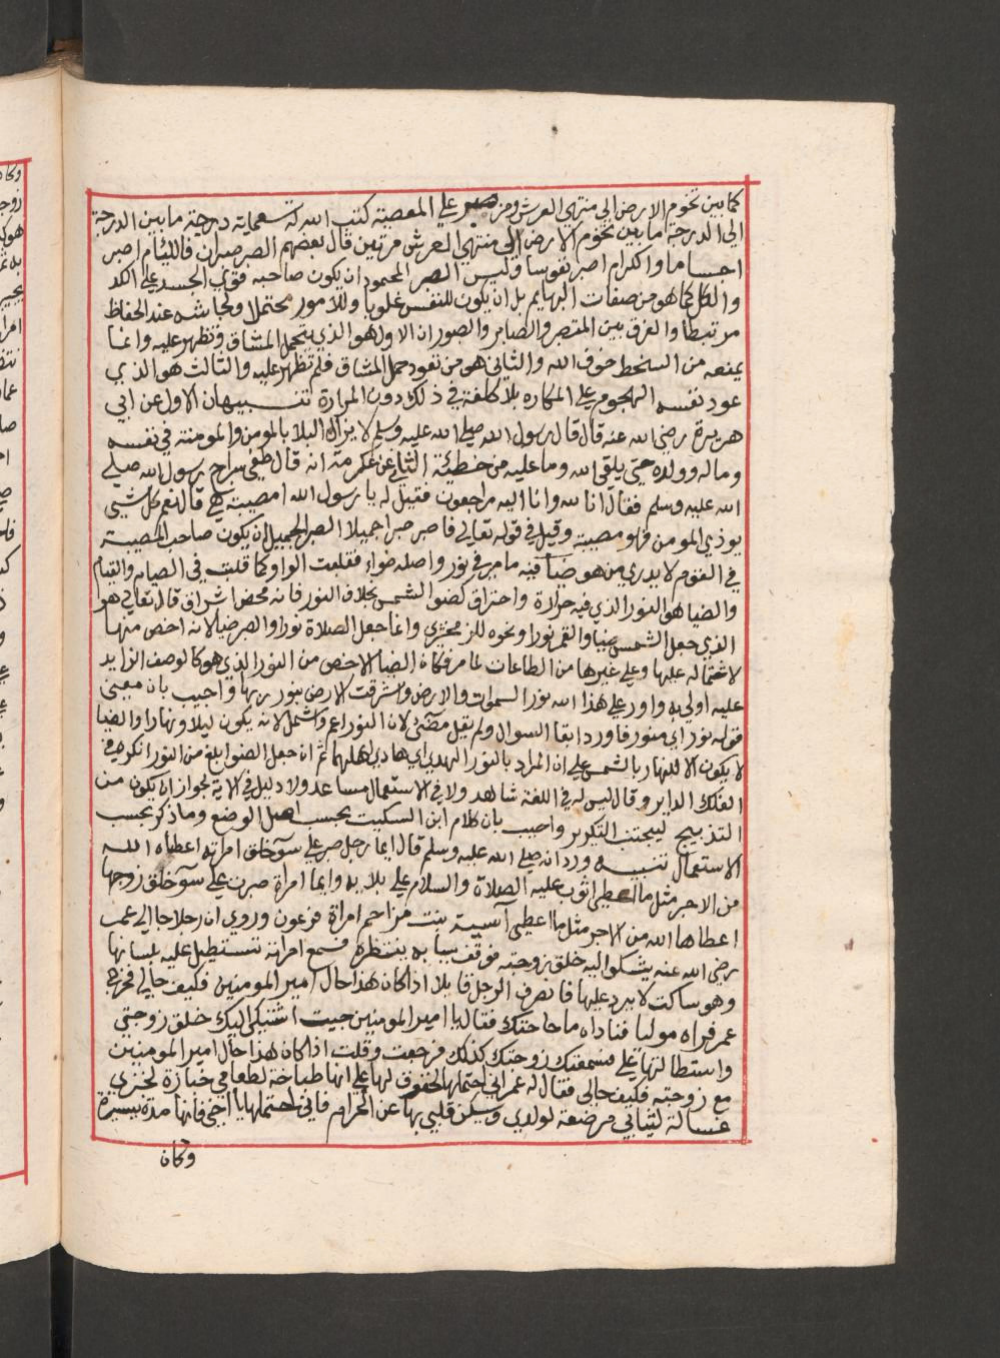 كما بين تخوم الارض الي منتهي العرش ومن صبر علي المعصية كتب الله له تسعماية درجة ما بين الدرجة
الي الدرجة ما بين تخوم الارض الي منتهي العرش مرتين قال بعضهم الصبر صبران فاللئام اصبر
اجساما والكرام اصبر نفوسا وليس الصبر المحمود ان يكون صاحبه قوي الجسد علي الكد
والكل كما هو من صفات البهايم بل ان يكون للنفس غلوبا وللامور محتملا ولجاشه عند الحفاظ
مرتبطا والفرق بين المتصبر والصابر والصبور ان الاول هو الذي يتحمل المشاق وتظهر عليه وانما
يمنعه من السخط خوف الله والثاني هو من تعود حمل المشاق فلم تظهر عليه والثالث هو الذي
عود نفسه الهجوم علي المكاره بلا كلفة في ذلك دون المرارة تنبيهان الاول عن ابي
هريرة رضي الله عنه قال قال رسول الله صلي الله عليه وسلم لا يزال البلا بالمومن والمومنة في نفسه
وماله وولده حتي يلقي الله وما عليه من خطيئة الثاني عن عكرمة انه قال طفي سراج رسول الله صلي
الله عليه وسلم فقال انا لله وانا اليه راجعون فقيل له يا رسول الله امصيبة هي قال نعم كل شيي
يوذي المومن فهو مصيبة وقيل في قوله تعالي فاصبر صبرا جميلا الصبر الجميل ان يكون صاحب المصيبة
في القوم لا يدري من هو ضيا فيه ما مر في نور واصله ضواء فقلبت الواو كما قلبت في الصيام والقيام
والضيا هو النور الذي فيه حرارة واحتراق كضو الشمس بخلاف النور فانه محض اشراق قال تعالي هو
الذي جعل الشمس ضيا والقمر نورا ونحوه للزمخشري وانما جعل الصلاة نورا والصبر ضيا لانه اخص منها
لاشتماله عليها وعلي غيرها من الطاعات لما مر فكان الضيا الاخص من النور الذي هو كالوصف الزايد
عليه اولي به واورد علي هذا الله نور السموات والارض واشرقت الارض بنور ربها واجيب بان معني
قوله نور اي منور فاورد ابقا السوال ولم يقل مضئ لان النور اعم واشمل لانه يكون ليلا ونهارا والضيا
لا يكون الا للنهار بالشمس علي ان المراد بالنور الهدي اي هادي اهلهما ثم ان جعل الضو ابلغ من النور انكره في
الفلك الداير وقال ليس له في اللغة شاهد ولا في الاستعمال مساعد ولا دليل في الاية لجواز ان يكون من
التذبيج ليجتنب التكرير واجيب بان كلام ابن السكيت بحسب اصل الوضع وما ذكر بحسب
الاستعمال تنبيه ورد انه صلي الله عليه وسلم قال ايما رجل صبر علي سو خلق امراته اعطاه الله
من الاجر مثل ما اعطي ايوب عليه الصلاة والسلام علي بلايه وايما امراة صبرت علي سو خلق زوجها
اعطاها الله من الاجر مثل ما اعطي آسية بنت مزاحم امراة فرعون وروي ان رجلا جا الي عمر
رضي الله عنه يشكوا اليه خلق زوجته فوقف ببابه ينتظره فسمع امراته تستطيل عليه بلسانها
وهو ساكت لا يرد عليها فانصرف الرجل قايلا اذا كان هذا حال امير المومنين فكيف حالي فخرج
عمر فراه موليا فناداه ما حاجتك فقال يا امير المومنين جيت اشتكي اليك خلق زوجتي
واستطالتها علي فسمعت زوجتك كذلك فرجعت وقلت اذا كان هذا حال امير المومنين
مع زوجته فكيف حالي فقال له عمر اني احتملها لحقوق لها علي انها طباخة لطعامي خبازة لخبزي
غسالة لثيابي مرضعة لولدي ويسكن قلبي بها عن الحرام فاني احتملها يا اخي فانها مدة يسيرة
وكان